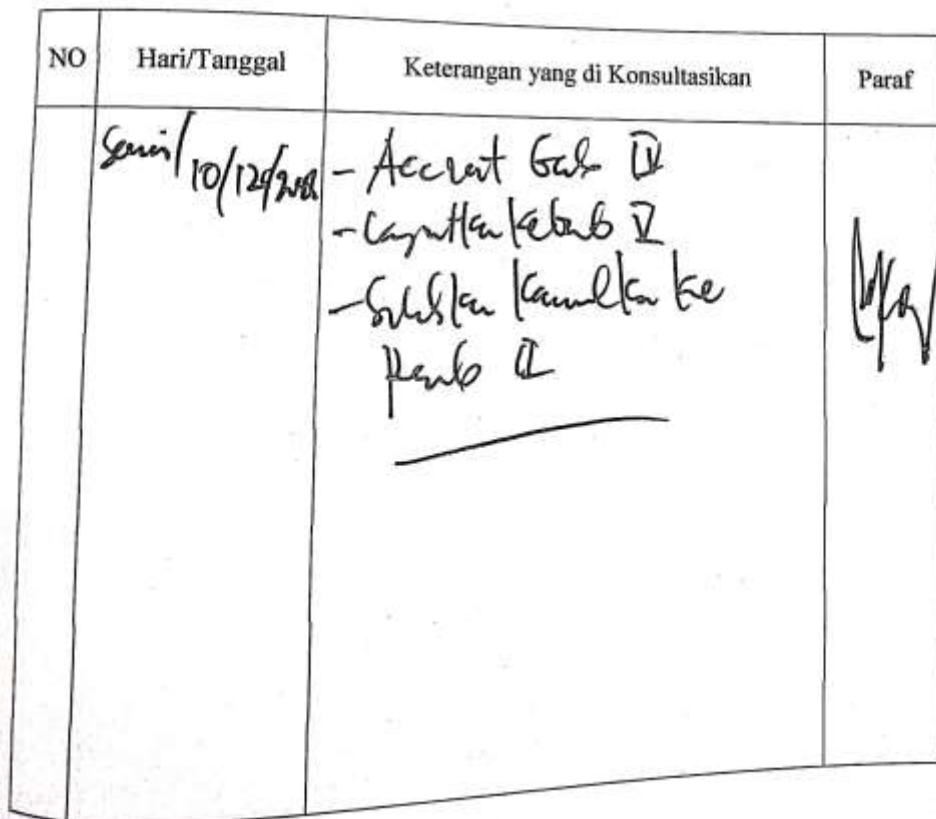 NO Hari/Tanggal Keterangan yang di Konsultasikan Paraf
Senin/10/12/2018 - Acc Bab IV
- Lanjutkan ke bab V
- Silahkan ke
II